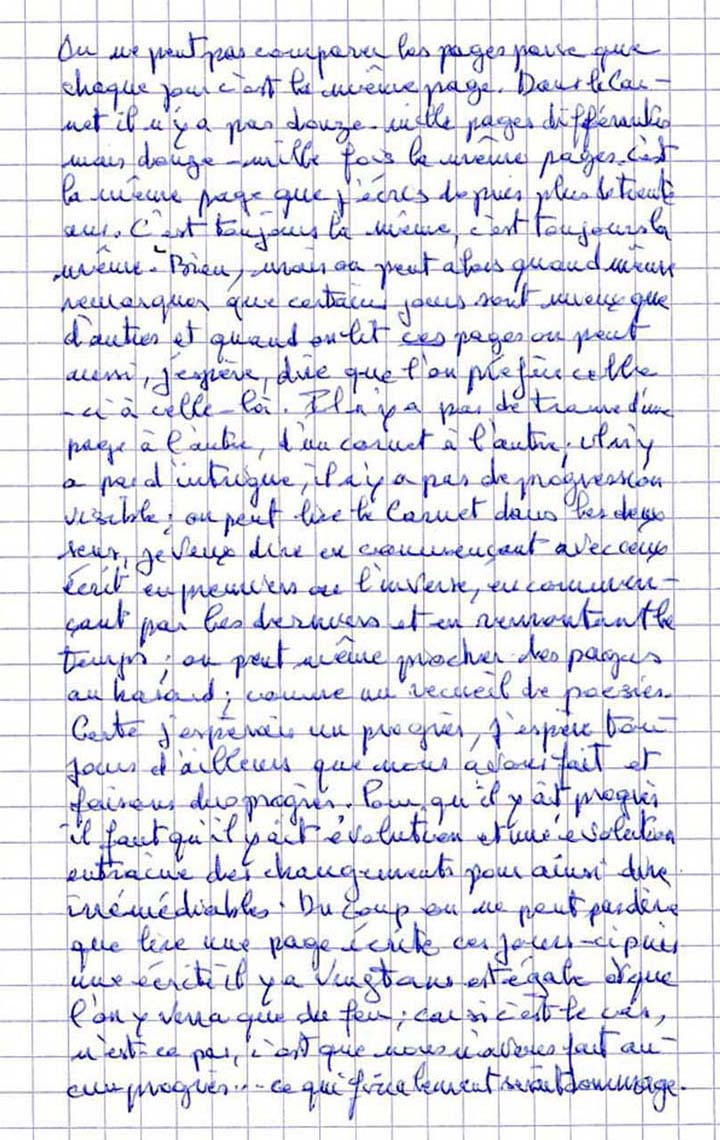 On ne peut pas comparer les pages parce que
chaque jour c'est la même page. Dans le Car-
net il n'y a pas douze-mille pages différentes
mais douze-mille fois la même pages. c'est
la même page que j'écris depuis plus de trente
ans. C'est toujours la même, c'est toujours la
même. Bien, mais on peut alors quand même
remarquer que certains jours sont mieux que
d'autres et quand on lit ces pages on peut
aussi, j'espère, dire que l'on préfère celle
-ci à celle-là. Il n'y a pas de trame d'une
page à l'autre, d'un carnet à l'autre; il n'y
a pas d'intrigue, il n'y a pas de progression
visible; on peut lire le Carnet dans les deux
sens, je veux dire en commençant avec ceux
écrit en premiers ou l'inverse, en commen-
çant par les derniers et en remontant le
temps; on peut même piocher des pages
au hasard; comme un recueil de poésies.
Certe j'espérais un progrès, j'espère tou-
jours d'ailleurs que nous avons fait et
faisons des progrès. Pour qu'il y ait progrès
il faut qu'il y ait évolution et une évolution
entraine des changements pour ainsi dire
irrémédiables. Du coup on ne peut pas dire
que lire une page écrite ces jours-ci puis
une écrite il y a vingt ans est égale et que
l'on y verra que du feu; car si c'est le cas,
n'est-ce pas, c'est que nous n'avons fait au-
cun progrès... ce qui finalement serait dommage.